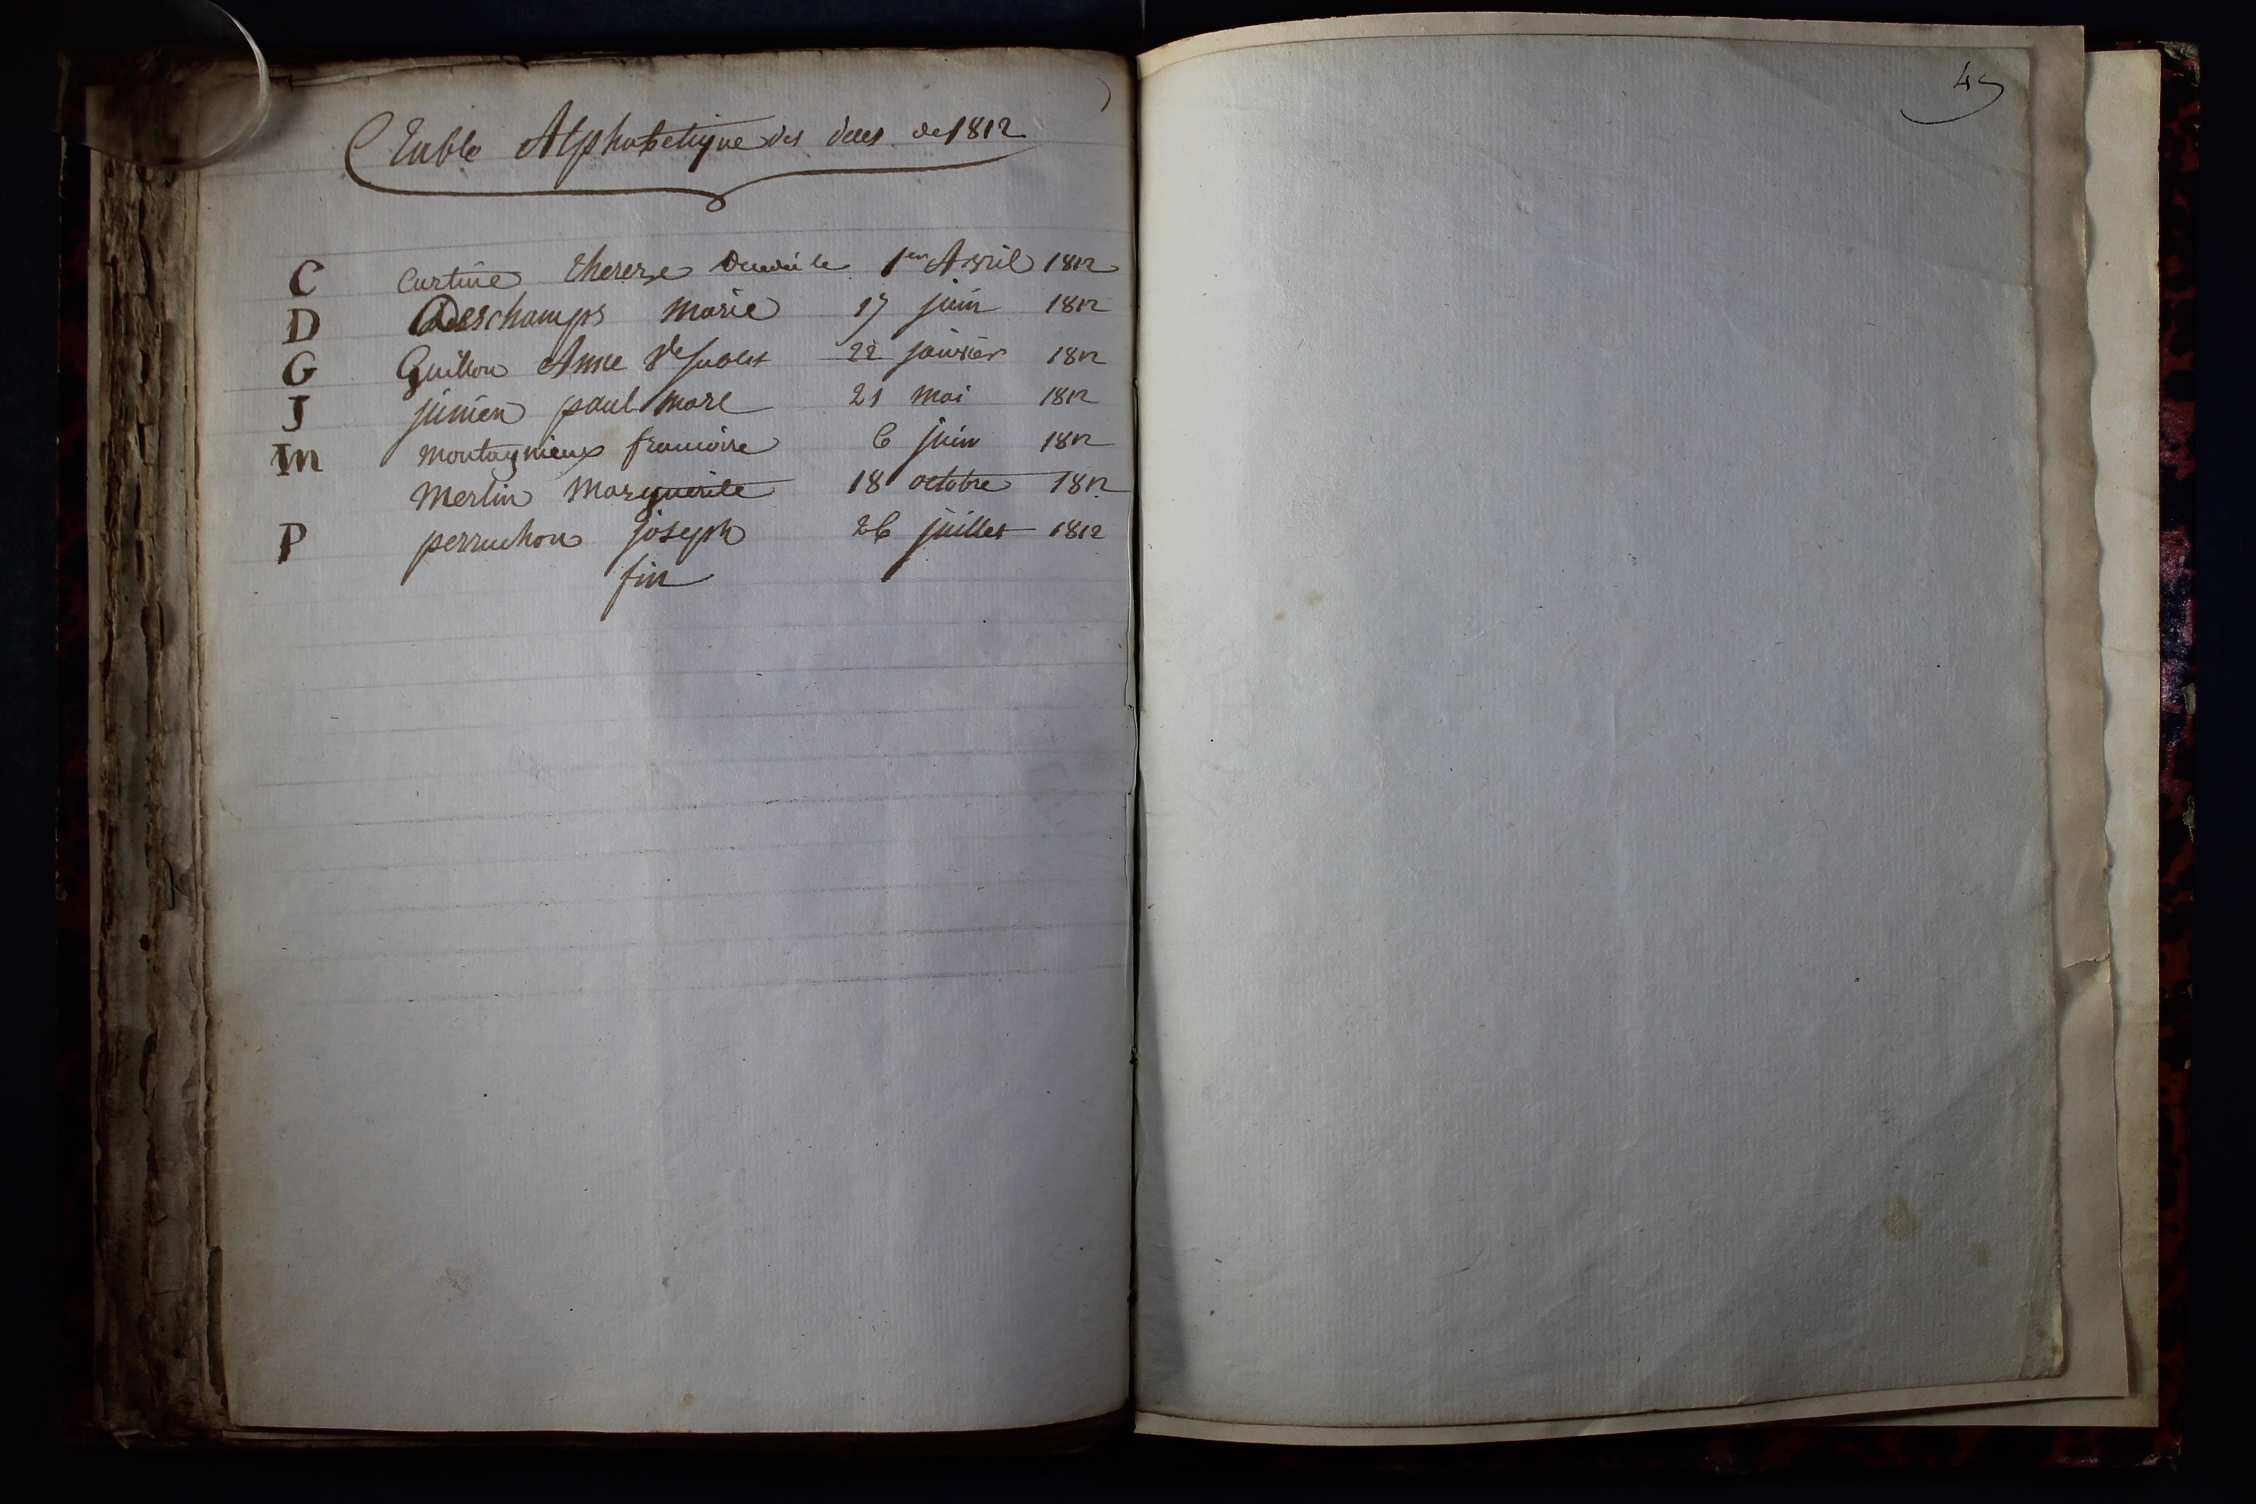 Table Alphabetique des deces de 1812
C Curtine therese 1er Avril 1812
D Deschamps marie 17 juin 1812
G Guillon Anne Ve 22 janvier 1812
J junien paul marc 21 mai 1812
M montagnieux francoise 6 juin 1812
Merlin marguerite 18 octobre 1812
P perruchon joseph 26 juillet 1812
fin